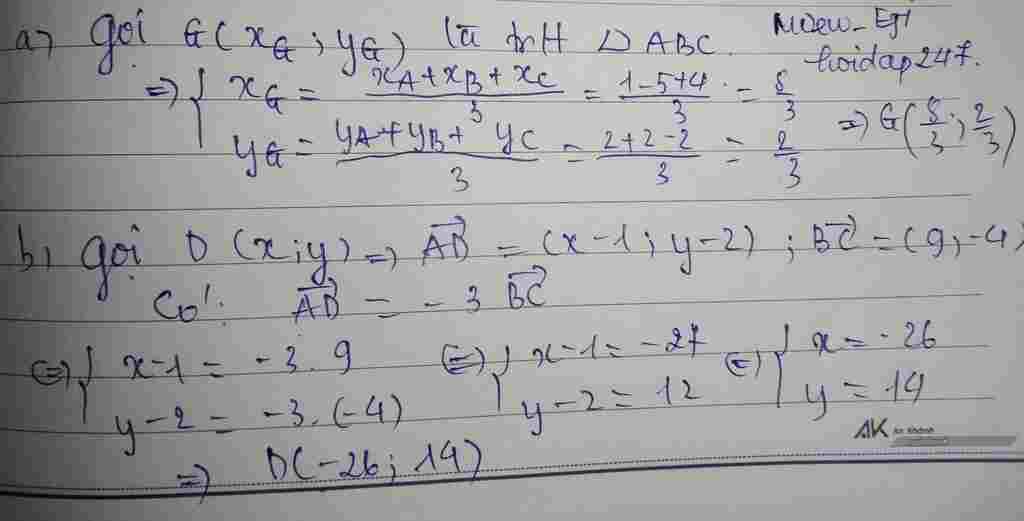 a, gọi G(x_G ; y_G) là tr/H △ABC.
hoidap247.
=> { x_G = (x_A + x_B + x_C)/3 = (1-5+4)/3 = 8/3
y_G = (y_A + y_B + y_C)/3 = (2+2-2)/3 = 2/3 => G(8/3 ; 2/3)
b, gọi D(x;y) => \overrightarrow{AD} = (x-1; y-2) ; \overrightarrow{BC} = (9;-4)
Có: \overrightarrow{AD} = -3\overrightarrow{BC}
<=> { x-1 = -3.9 <=> { x-1 = -27 <=> { x = -26
y-2 = -3.(-4) y-2 = 12 y = 14
=> D(-26; 14)
AK